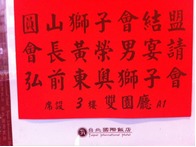 圓山獅子會結盟
會長黃榮男宴請
弘前東奧獅子會
席設3樓雙園廳 A1
台北國際飯店
Taipei International Hotel